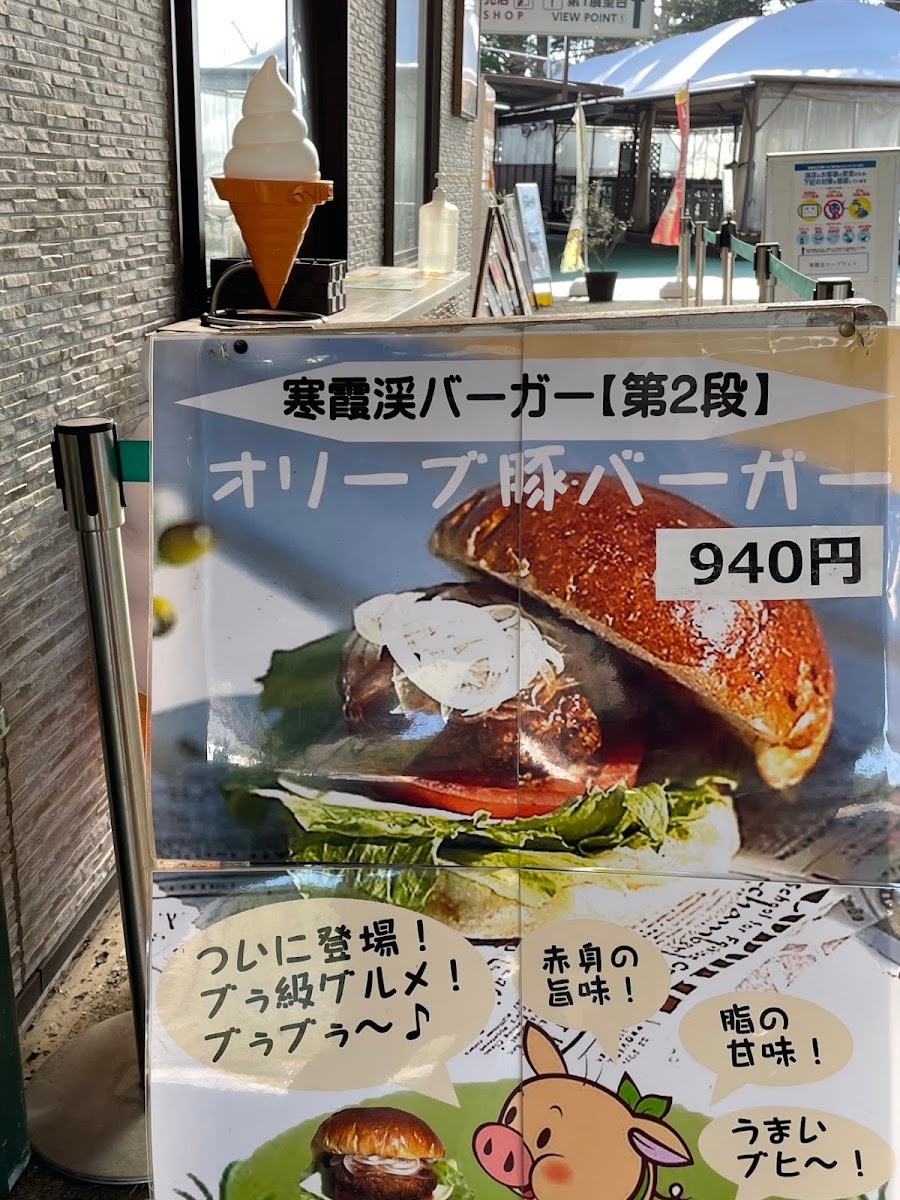 売店
SHOP
第1展望台
VIEW POINT①
寒霞渓バーガー【第2段】
オリーブ豚バーガー
940円
ついに登場！
ブぅ級グルメ！
ブぅブぅ〜♪
赤身の
旨味！
脂の
甘味！
うまい
ブヒ〜！